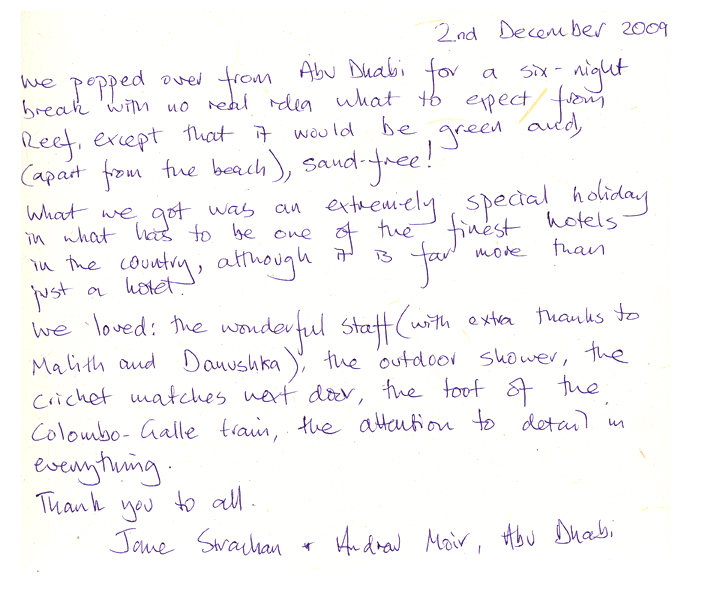 2nd December 2009
We popped over from Abu Dhabi for a six-night
break with no real idea what to expect from
Reef, except that it would be green and,
(apart from the beach), sand-free!
What we got was an extremely special holiday
in what has to be one of the finest hotels
in the country, although it is far more than
just a hotel.
We loved: the wonderful staff (with extra thanks to
Malith and Danushka), the outdoor shower, the
cricket matches next door, the toot of the
Colombo-Galle train, the attention to detail in
everything.
Thank you to all.
Jane Strachan + Andrew Moir, Abu Dhabi